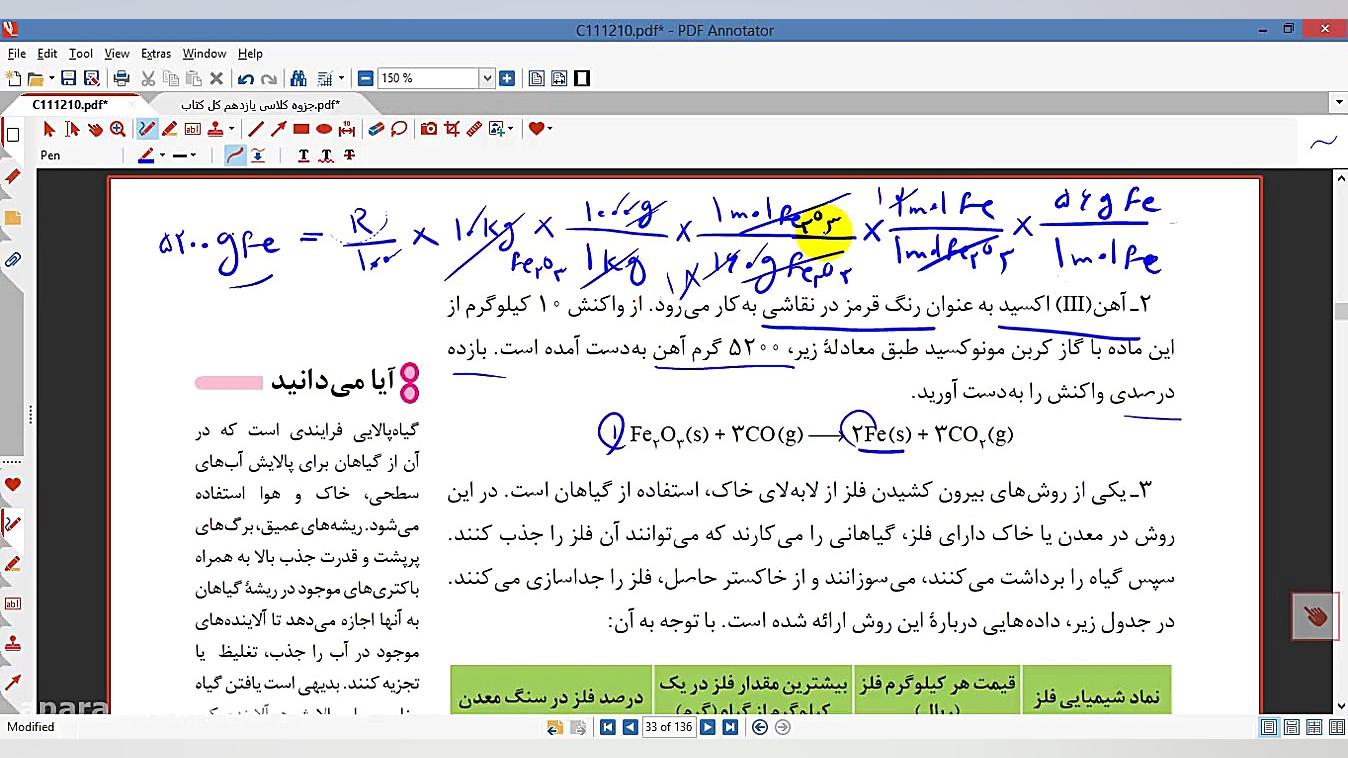 C111210.pdf* - PDF Annotator
File Edit Tool View Extras Window Help
150 %
C111210.pdf*
جزوه کلاسی یازدهم کل کتاب.pdf*
Pen
۵۲۰۰ gFe = R/۱۰۰ × ۱۰kg Fe₂O₃ × ۱۰۰۰g/۱kg × ۱mol Fe₂O₃/۱۶۰g Fe₂O₃ × ۲mol Fe/۱mol Fe₂O₃ × ۵۶g Fe/۱mol Fe
۲ـ آهن(III) اکسید به عنوان رنگ قرمز در نقاشی به‌کار می‌رود. از واکنش ۱۰ کیلوگرم از
این ماده با گاز کربن مونوکسید طبق معادلهٔ زیر، ۵۲۰۰ گرم آهن به‌دست آمده است. بازده
درصدی واکنش را به‌دست آورید.
۱ Fe₂O₃(s) + ۳CO(g) ⟶ ۲Fe(s) + ۳CO₂(g)
۳ـ یکی از روش‌های بیرون کشیدن فلز از لابه‌لای خاک، استفاده از گیاهان است. در این
روش در معدن یا خاک دارای فلز، گیاهانی را می‌کارند که می‌توانند آن فلز را جذب کنند.
سپس گیاه را برداشت می‌کنند، می‌سوزانند و از خاکستر حاصل، فلز را جداسازی می‌کنند.
در جدول زیر، داده‌هایی دربارهٔ این روش ارائه شده است. با توجه به آن:
نماد شیمیایی فلز
قیمت هر کیلوگرم فلز
(ریال)
بیشترین مقدار فلز در یک
کیلوگرم از گیاه (گرم)
درصد فلز در سنگ معدن
آیا می‌دانید
گیاه‌پالایی فرایندی است که در
آن از گیاهان برای پالایش آب‌های
سطحی، خاک و هوا استفاده
می‌شود. ریشه‌های عمیق، برگ‌های
پرپشت و قدرت جذب بالا به همراه
باکتری‌های موجود در ریشهٔ گیاهان
به آنها اجازه می‌دهد تا آلاینده‌های
موجود در آب را جذب، تغلیظ یا
تجزیه کنند. بدیهی است یافتن گیاه
Modified
33 of 136